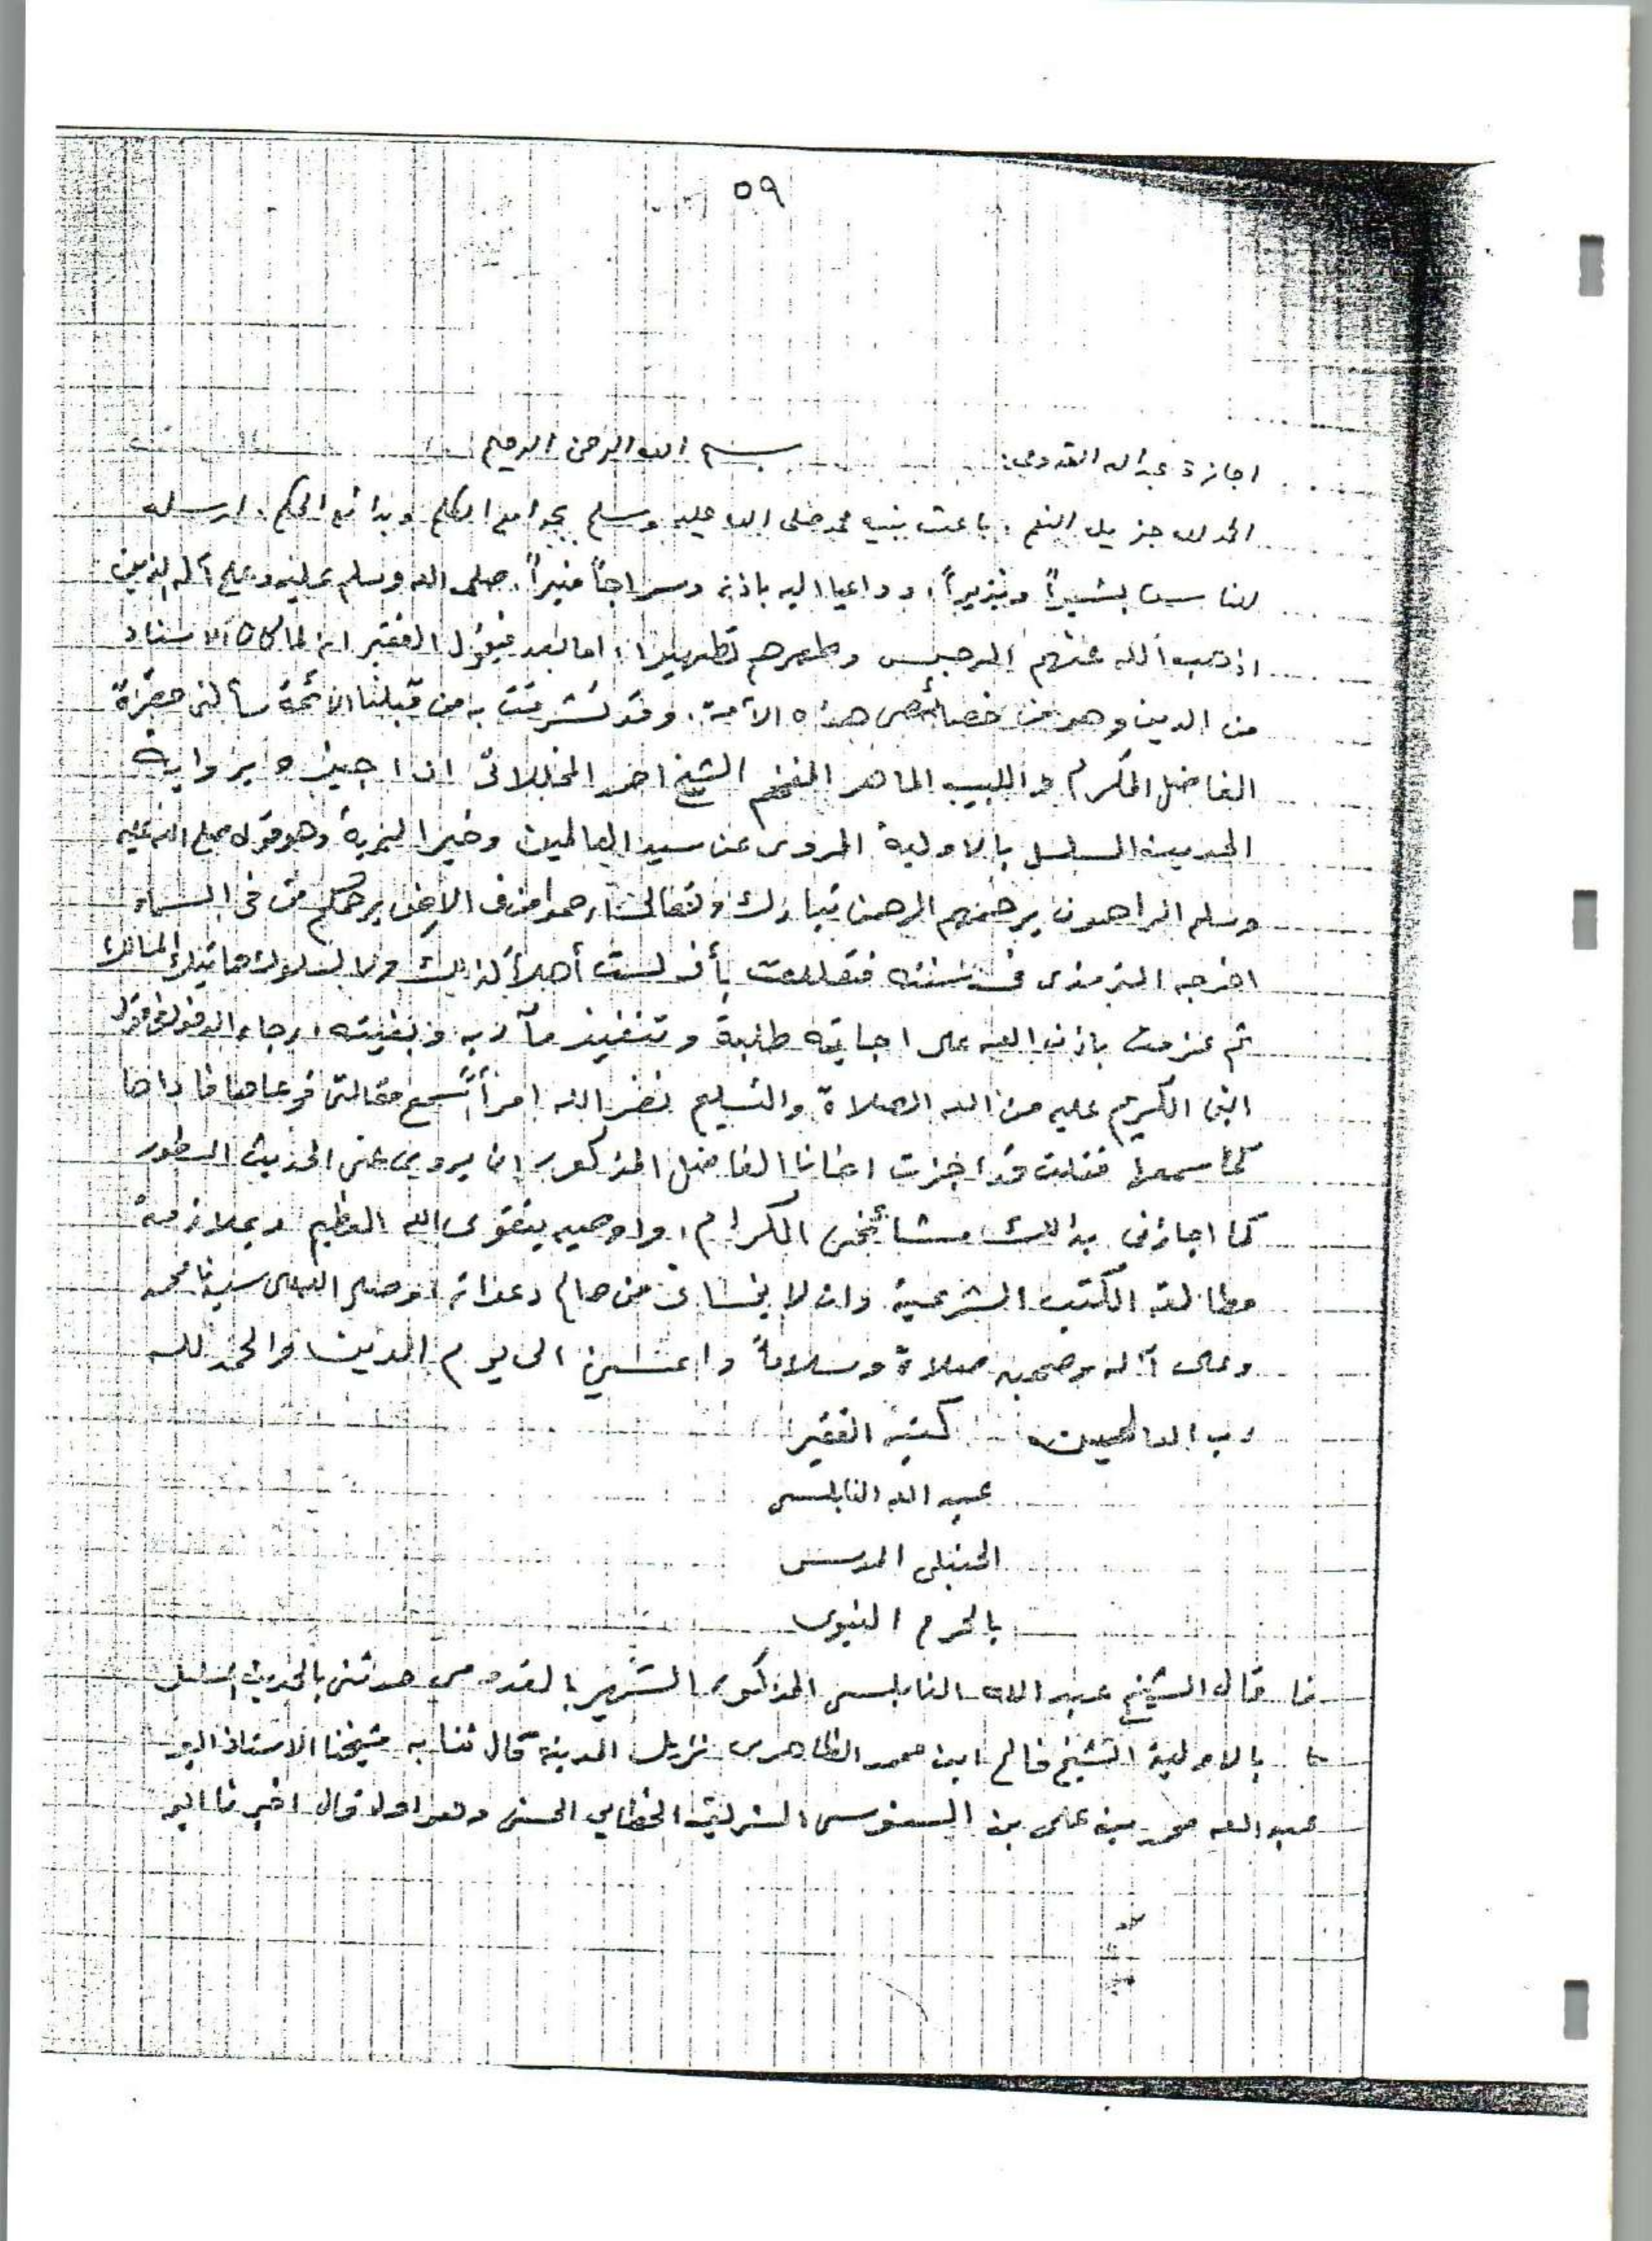 ٥٩
اجازة عبد الله القدومي: بسم الله الرحمن الرحيم
الحمد لله جزيل النعم، باعث نبيه محمد صلى الله عليه وسلم بجوامع الكلم وبدائع الحكم، ارسله
للناس بشيراً ونذيراً، وداعيا اليه باذنه وسراجاً منيراً، صلى الله وسلم عليه وعلى آله الذين
اذهب الله عنهم الرجس وطهرهم تطهيرا، اما بعد فيقول الفقير انه لما كان الاسناد
من الدين وهو من خصائص هذه الأمة، وقد تشرفت به من قبلنا الائمة سألني حضرة
الفاضل المكرم واللبيب الماهر المفخم الشيخ احمد المخللاتي ان اجيزه برواية
الحديث المسلسل بالاولية المروى عن سيد العالمين وخير البرية وهو قوله صلى الله عليه
وسلم الراحمون يرحمهم الرحمن تبارك وتعالى ارحموا من في الارض يرحمكم من في السماء
اخرجه الترمذى في سننه فتعللت بأني لست أهلاً لذلك ولا لسلوك هاتيك المسالك
ثم عزمت باذن الله على اجابته طلبة وتنفيذ مآربه وبغيته، رجاء الدخول في قول
النبي الكريم عليه من الله الصلاة والتسليم نضر الله امرأً سمع مقالتي فوعاها فاداها
كما سمعها فقلت قد اجزت اخانا الفاضل المذكور ان يروي عني الحديث المسطور
كما اجازني بذلك مشائخي الكرام، واوصيه بتقوى الله العظيم وبملازمة
مطالعة الكتب الشرعية وان لا ينساني من صالح دعواته وصلى الله على سيدنا محمد
وعلى آله وصحبه صلاة وسلاماً دائمين الى يوم الدين والحمد لله
رب العالمين كتبه الفقير
عبد الله النابلسي
الحنبلي المدرس
بالحرم النبوى
قال الشيخ عبد الله النابلسي المذكور الشهير بالقدومي حدثني بالحديث المسلسل
بالاولية الشيخ فالح ابن محمد الظاهرى نزيل المدينة قال ثنا به شيخنا الاستاذ ابو
عبد الله محمد بن على بن السنوسى الشريف الخطابي الحسني وهو اول قال اخبرنا ابو